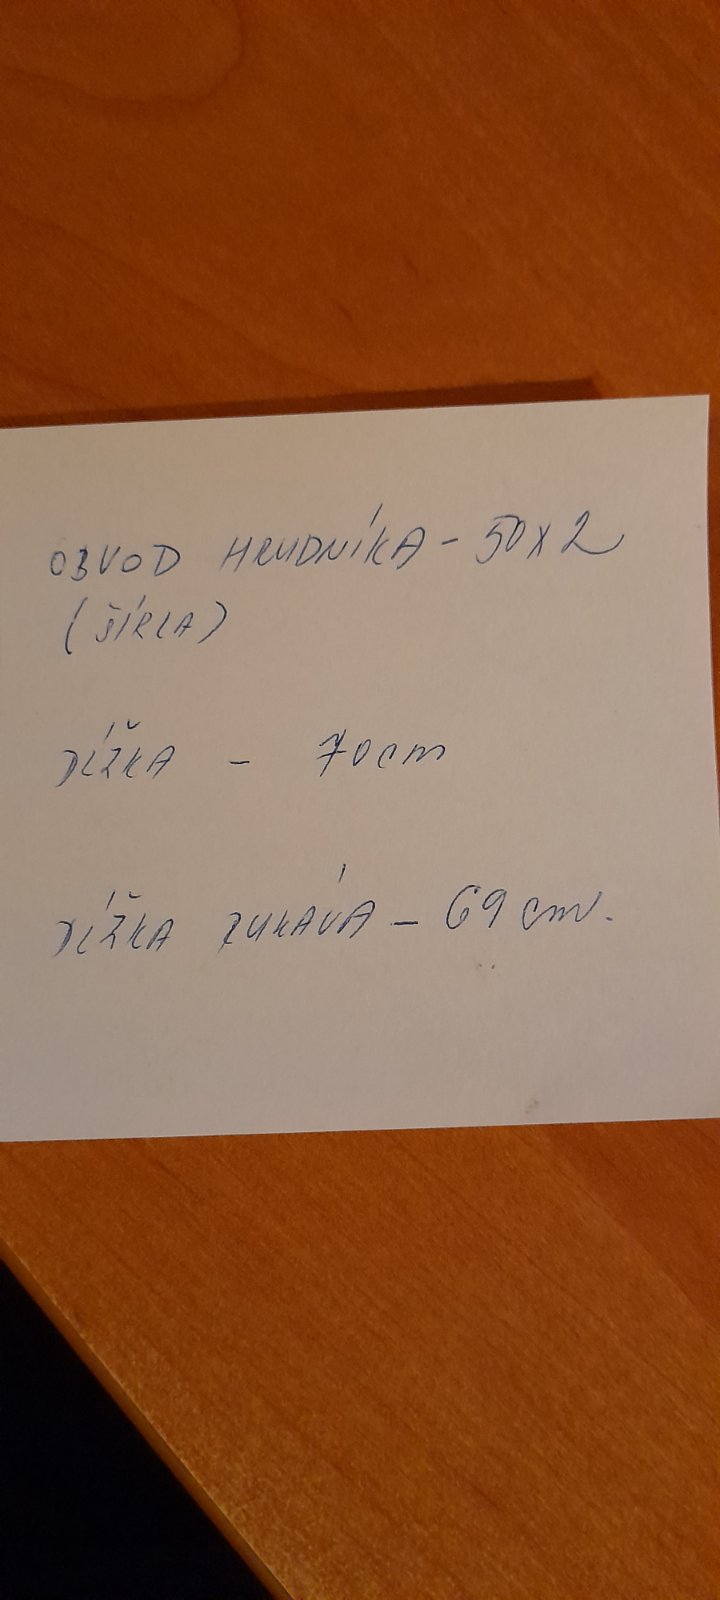 OBVOD HRUDNÍKA - 50 x 2
(ŠÍRKA)
DĹŽKA - 70 cm
DĹŽKA RUKÁVA - 69 cm.